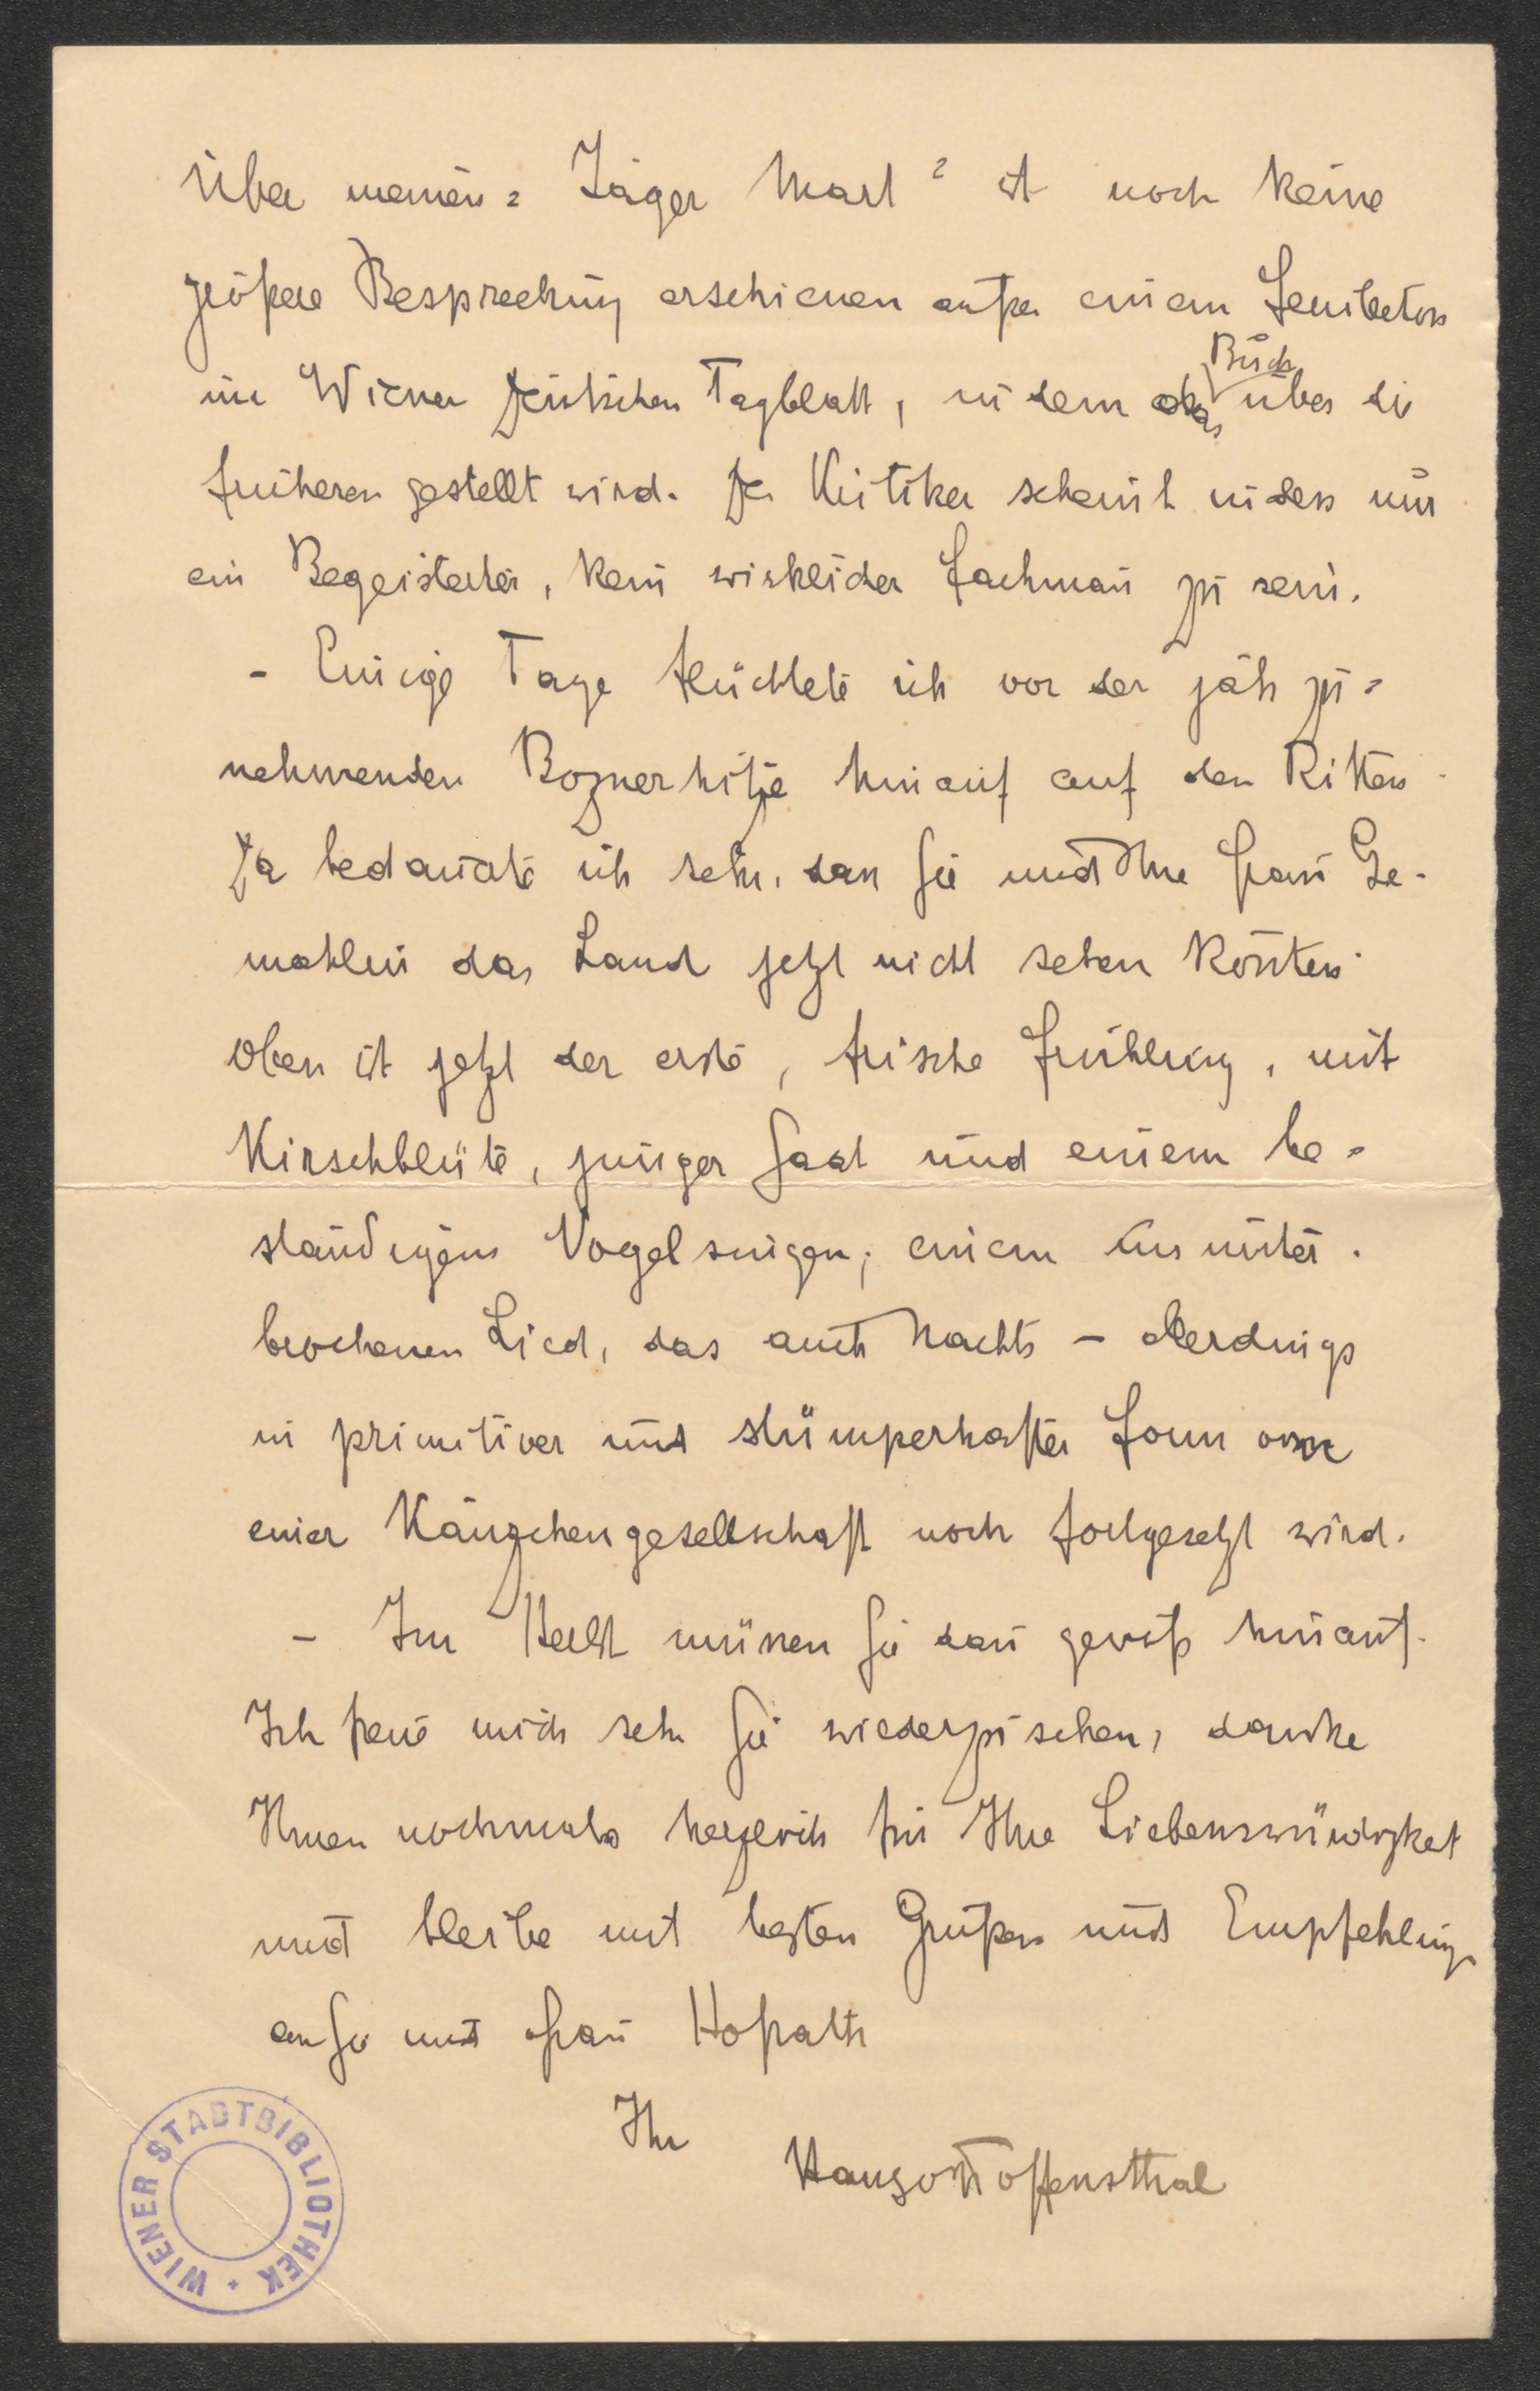 Über meinen „Jäger Marl“ ist noch keine
größere Besprechung erschienen außer einem Feuilleton
im Wiener Deutschen Tagblatt, in dem das Buch über die
früheren gestellt wird. Der Kritiker scheint indess nur
ein Begeisterter, kein wirklicher Fachmañ zu sein.
- Einige Tage flüchtete ich vor der jäh zu=
nehmenden Boznerhitze hinauf auf den Ritten.
Da bedauerte ich sehr, dass Sie und Ihre Frau Ge-
mahlin das Land jetzt nicht sehen koñten.
Oben ist jetzt der erste, frische Frühling, mit
Kirschblüte, junger Saat und einem be=
ständigem Vogelsingen, einem ununter-
brochenen Lied, das auch Nachts – allerdings
in primitiver und stümperhafter Form von
einer Käuzchengesellschaft noch fortgesetzt wird.
- Im Herbst müssen Sie dañ gewiß hinauf.
Ich freue mich sehr Sie wiederzusehen, danke
Ihnen nochmals herzlich für Ihre Liebenswürdigkeit
und bleibe mit besten Grüßen und Empfehlungen
an Sie und Frau Hofrath
Ihr
Hans v Hoffensthal
WIENER STADTBIBLIOTHEK